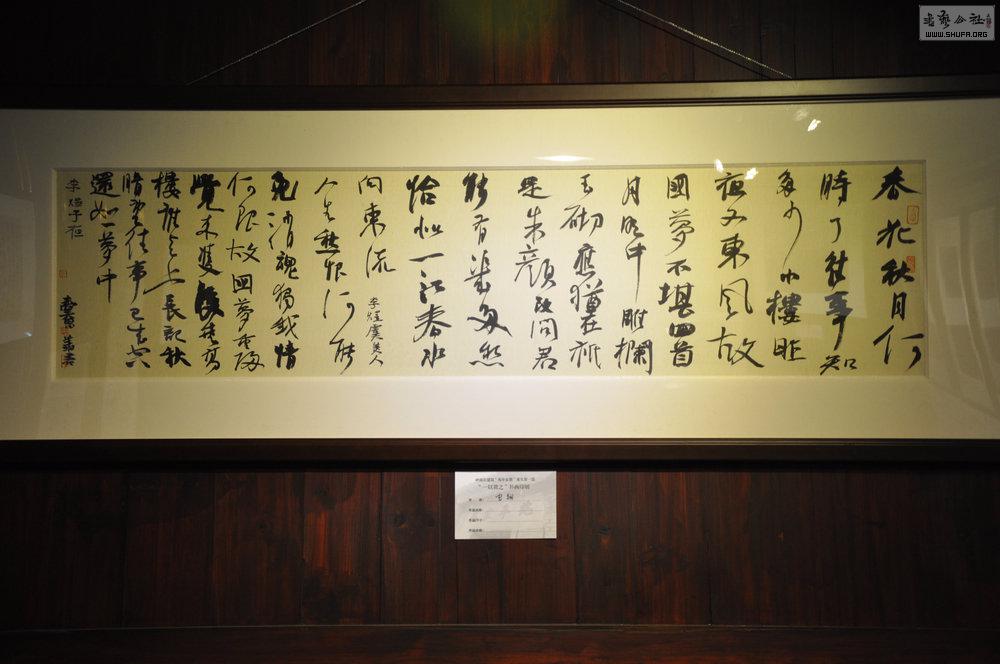 春花秋月何
時了往事知
多少小樓昨
夜又東風故
國夢不堪回首
月明中雕欄
玉砌應猶在祇
是朱顏改問君
能有幾多愁
恰似一江春水
向東流
李煜虞美人
人生愁恨何能
免消魂獨我情
何限故國夢重歸
覺來雙淚垂高
樓誰與上長記秋
晴望往事已成空
還如一夢中
李煜子夜
"一以貫之"书画印展
書藝公社
WWW.SHUFA.ORG